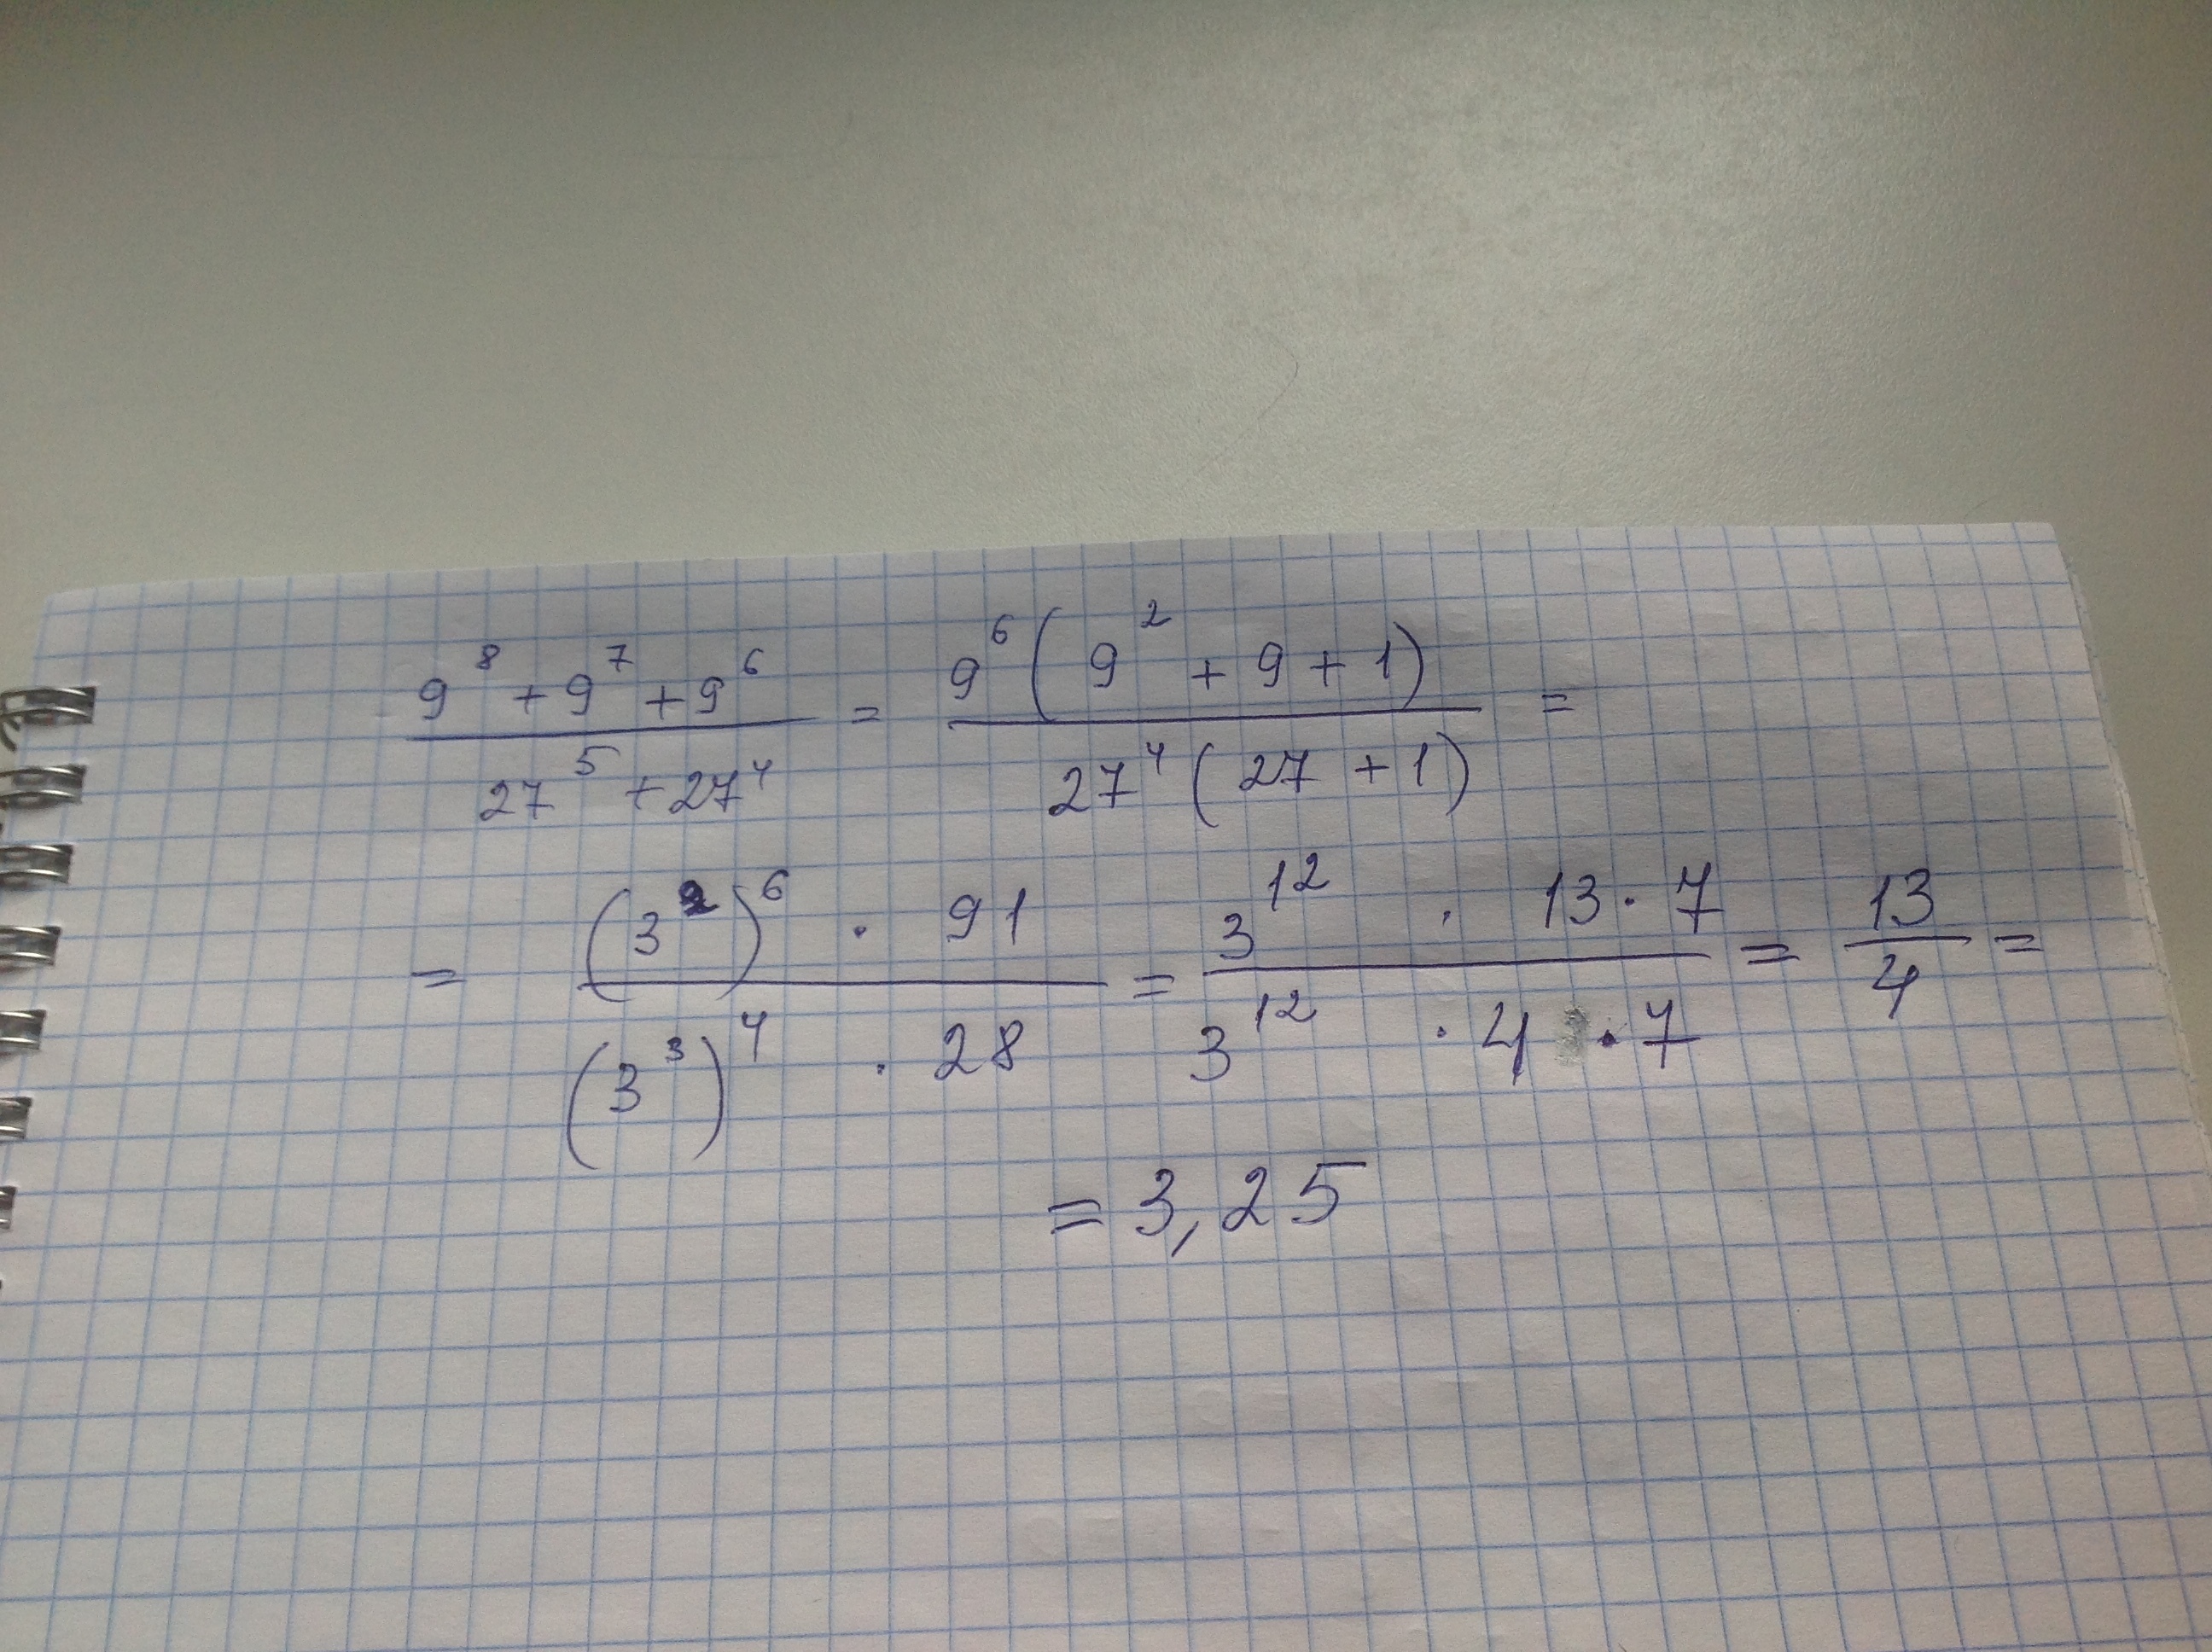 (9^8 + 9^7 + 9^6) / (27^5 + 27^4) = 9^6 ( 9^2 + 9 + 1) / 27^4 ( 27 + 1) =
= (3^2)^6 · 91 / (3^3)^4 · 28 = 3^12 · 13 · 7 / 3^12 · 4 · 7 = 13/4 =
= 3,25